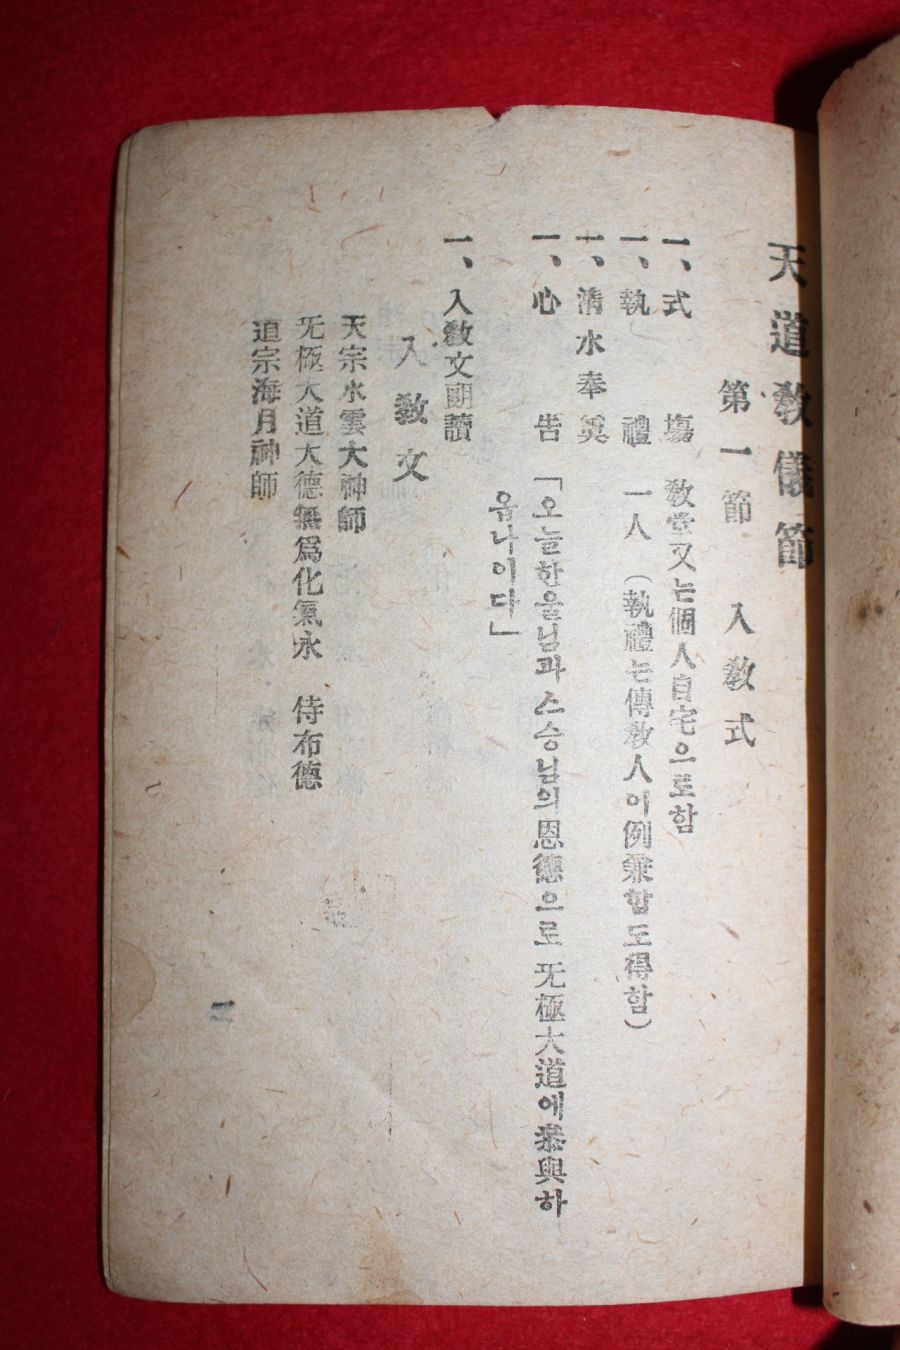 天道敎儀節
第一節 入敎式
一、式場 敎堂又는個人自宅으로함
一、執禮 一人 (執禮는傳敎人이例兼할도得함)
一、淸水奉奠
一、心告 「오늘한울님과스승님의恩德으로 无極大道에叅與하
읍나이다」
一、入敎文朗讀
入敎文
天宗水雲大神師
无極大道大德無爲化氣永 侍布德
道宗海月神師